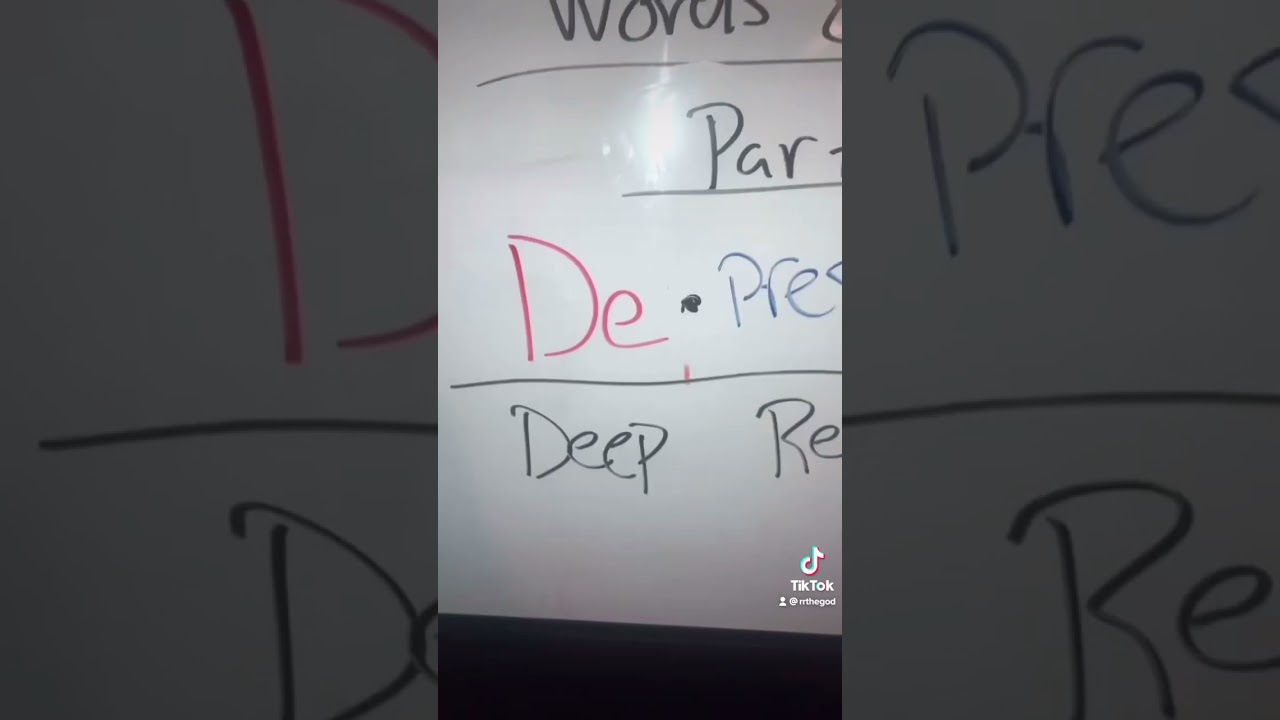 Words
Par-
De • Pres
Deep Re
TikTok
@rrthegod